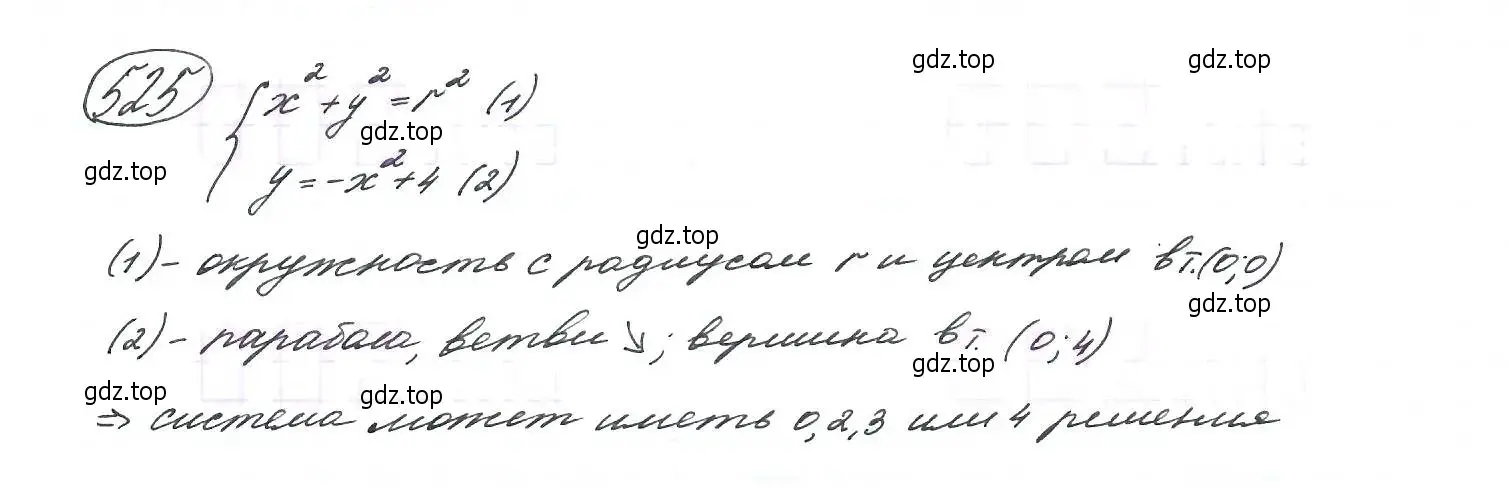 525 { x² + y² = r² (1)
y = -x² + 4 (2)
(1) - окружность с радиусом r и центром в т. (0;0)
(2) - парабола, ветви ↘; вершина в т. (0;4)
⇒ система может иметь 0,2,3 или 4 решения
gdz.top gdz.top
gdz.top
gdz.top
gdz.top
gdz.top
gdz.top
gdz.top gdz.top